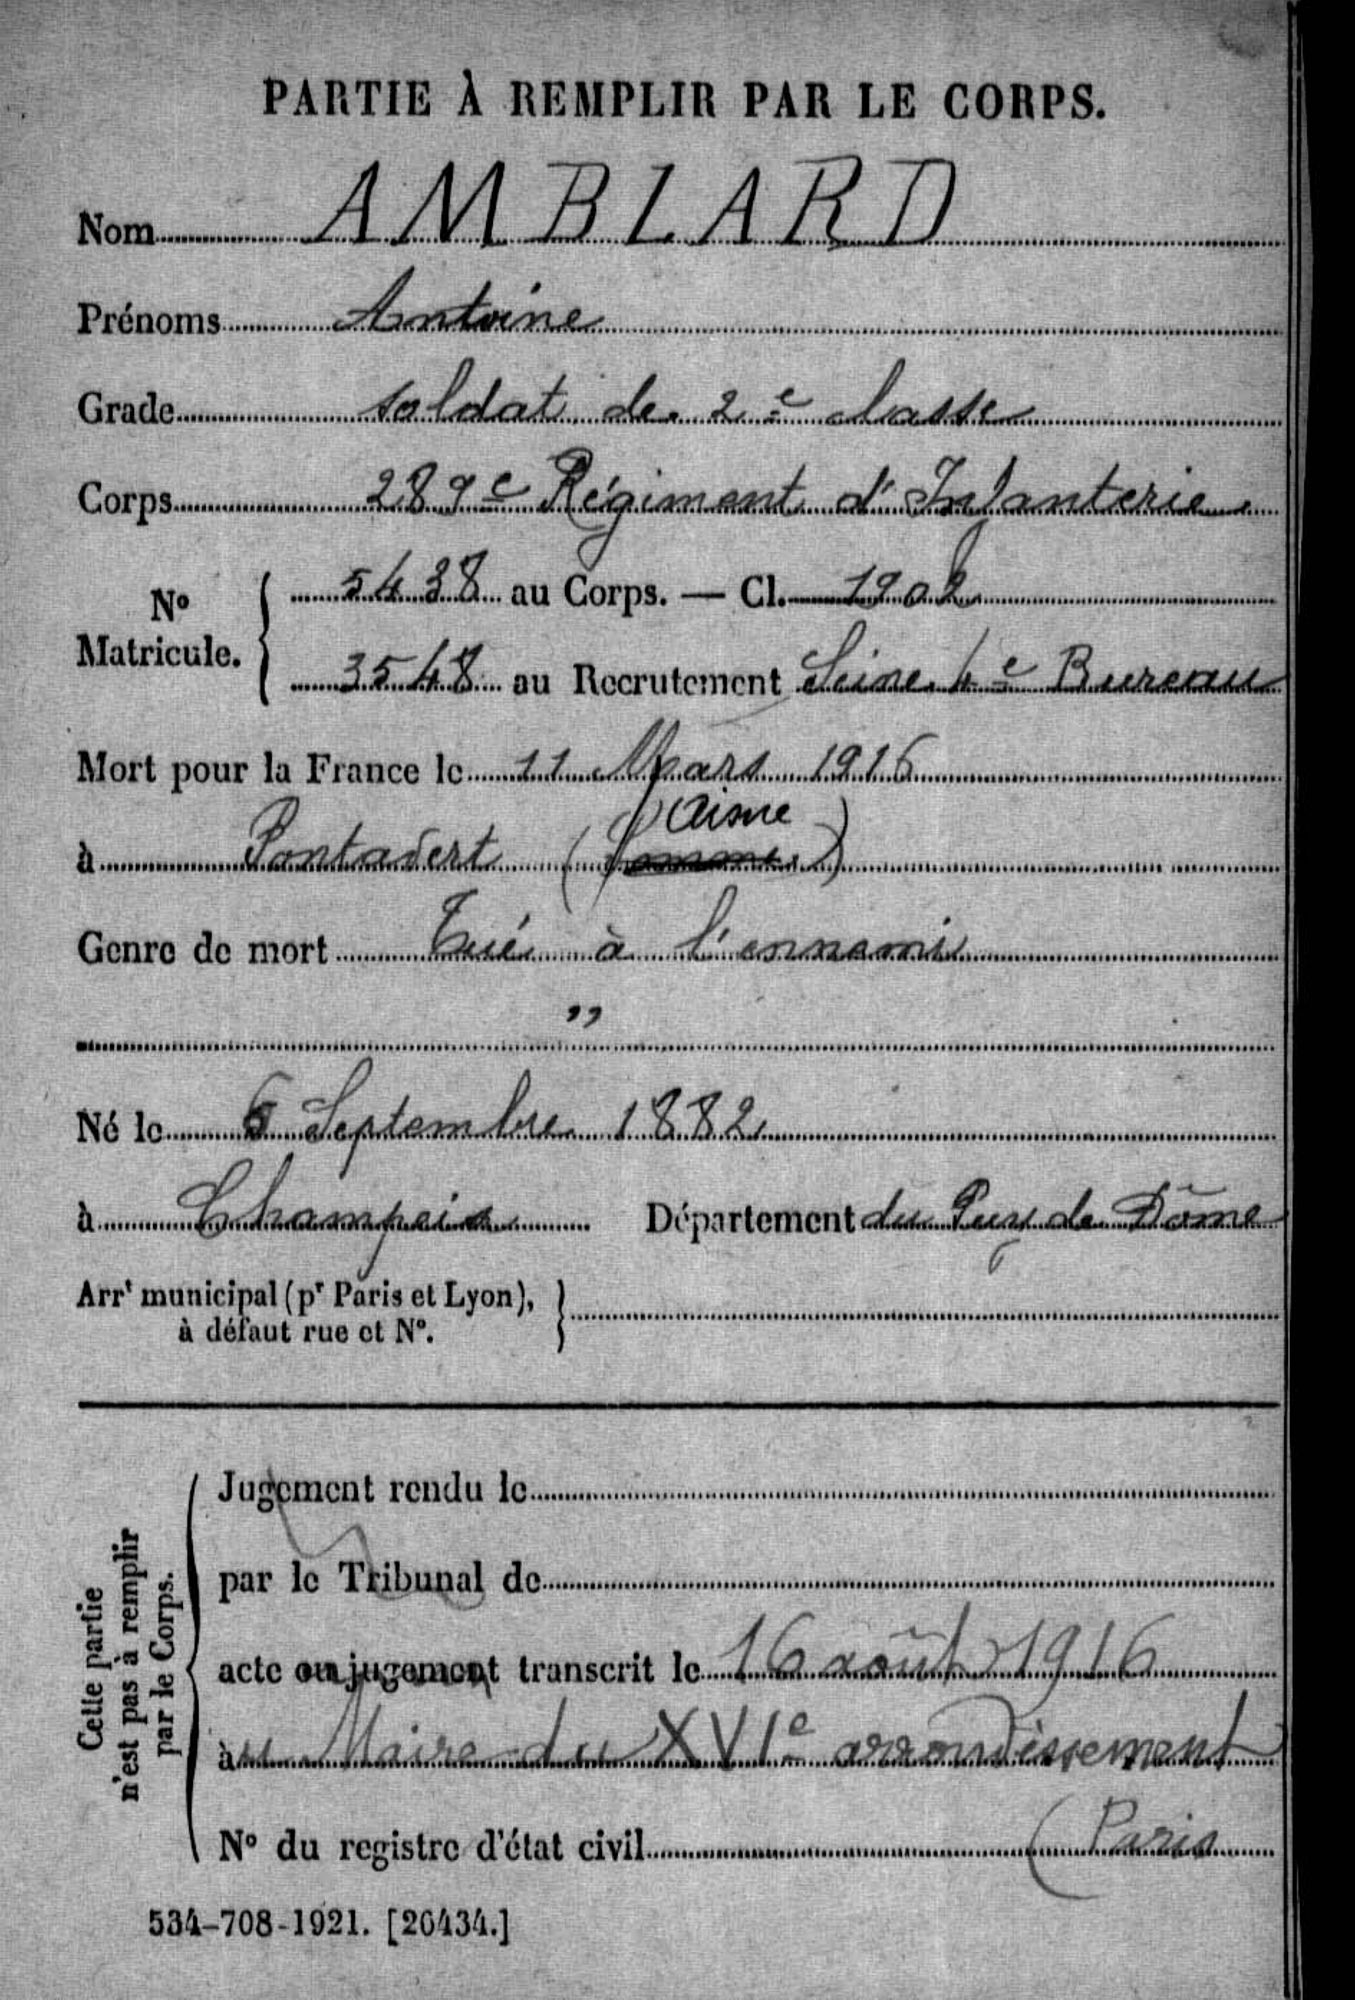 PARTIE À REMPLIR PAR LE CORPS.
Nom AMBLARD
Prénoms Antoine
Grade soldat de 2e classe
Corps 289e Régiment d'Infanterie
No Matricule. 5438 au Corps. — Cl. 1902
3548 au Recrutement Seine 4e Bureau
Mort pour la France le 11 Mars 1916
à Pontavert (Somme) Aisne
Genre de mort Tué à l'ennemi
"
Né le 6 Septembre 1882
à Champeix Département du Puy de Dôme
Arrt municipal (pr Paris et Lyon),
à défaut rue et No.
Cette partie
n'est pas à remplir
par le Corps.
Jugement rendu le
par le Tribunal de
acte ou jugement transcrit le 16 août 1916
à u Maire du XVIe arrondissement
No du registre d'état civil (Paris
534-708-1921. [26434.]